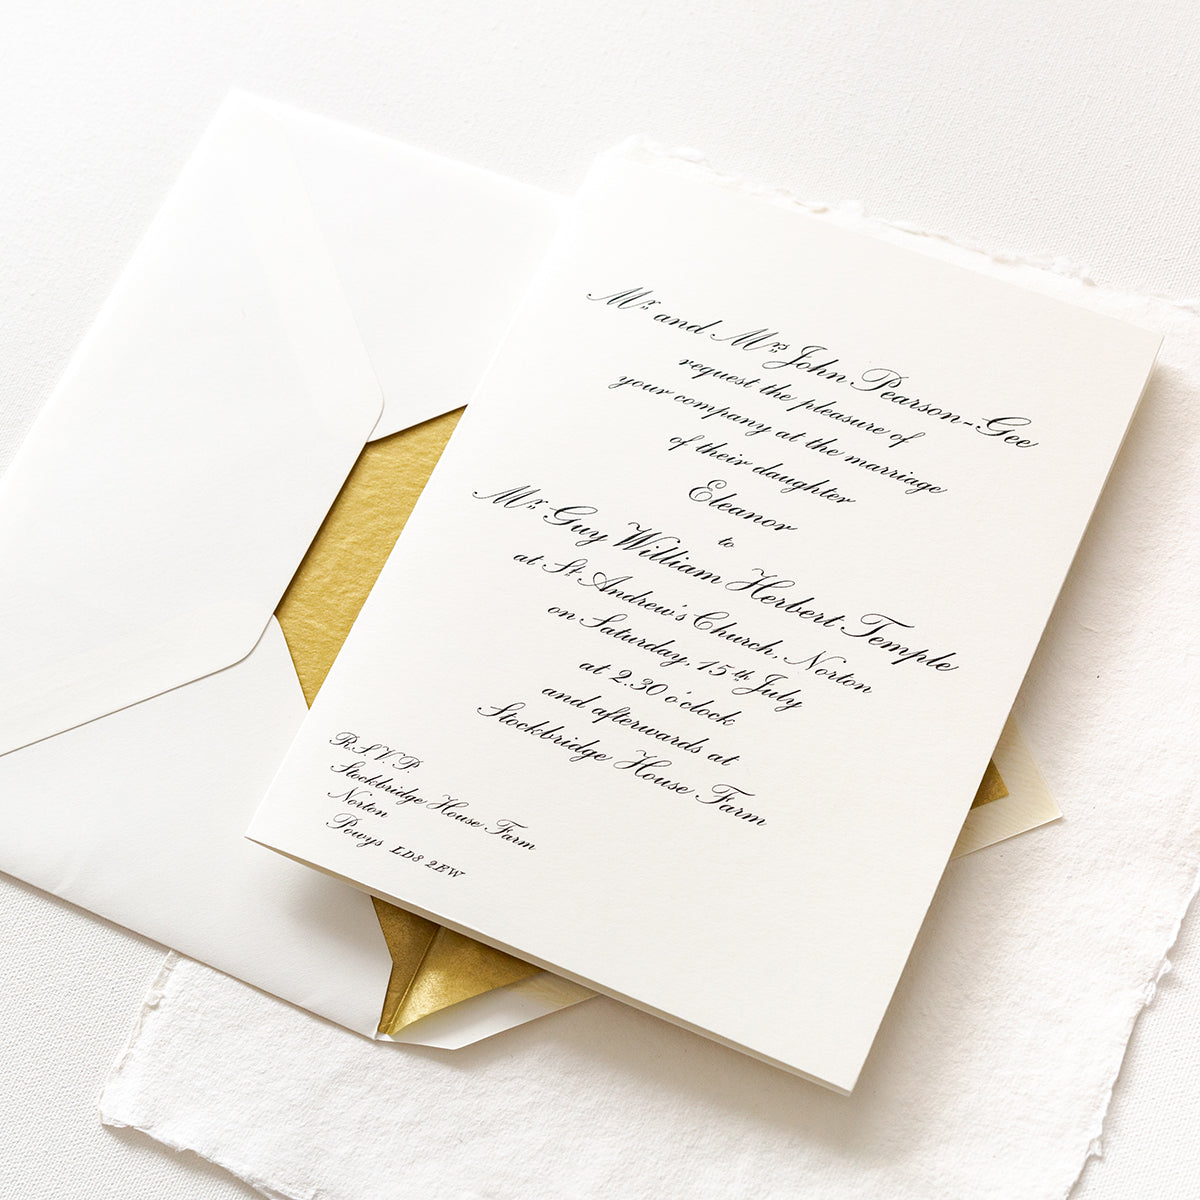 Mr and Mrs John Pearson-Gee
request the pleasure of
your company at the marriage
of their daughter
Eleanor
to
Mr Guy William Herbert Temple
at St Andrew's Church, Norton
on Saturday, 15th July
at 2.30 o'clock
and afterwards at
Stockbridge House Farm
R.S.V.P.
Stockbridge House Farm
Norton
Powys LD8 2EW